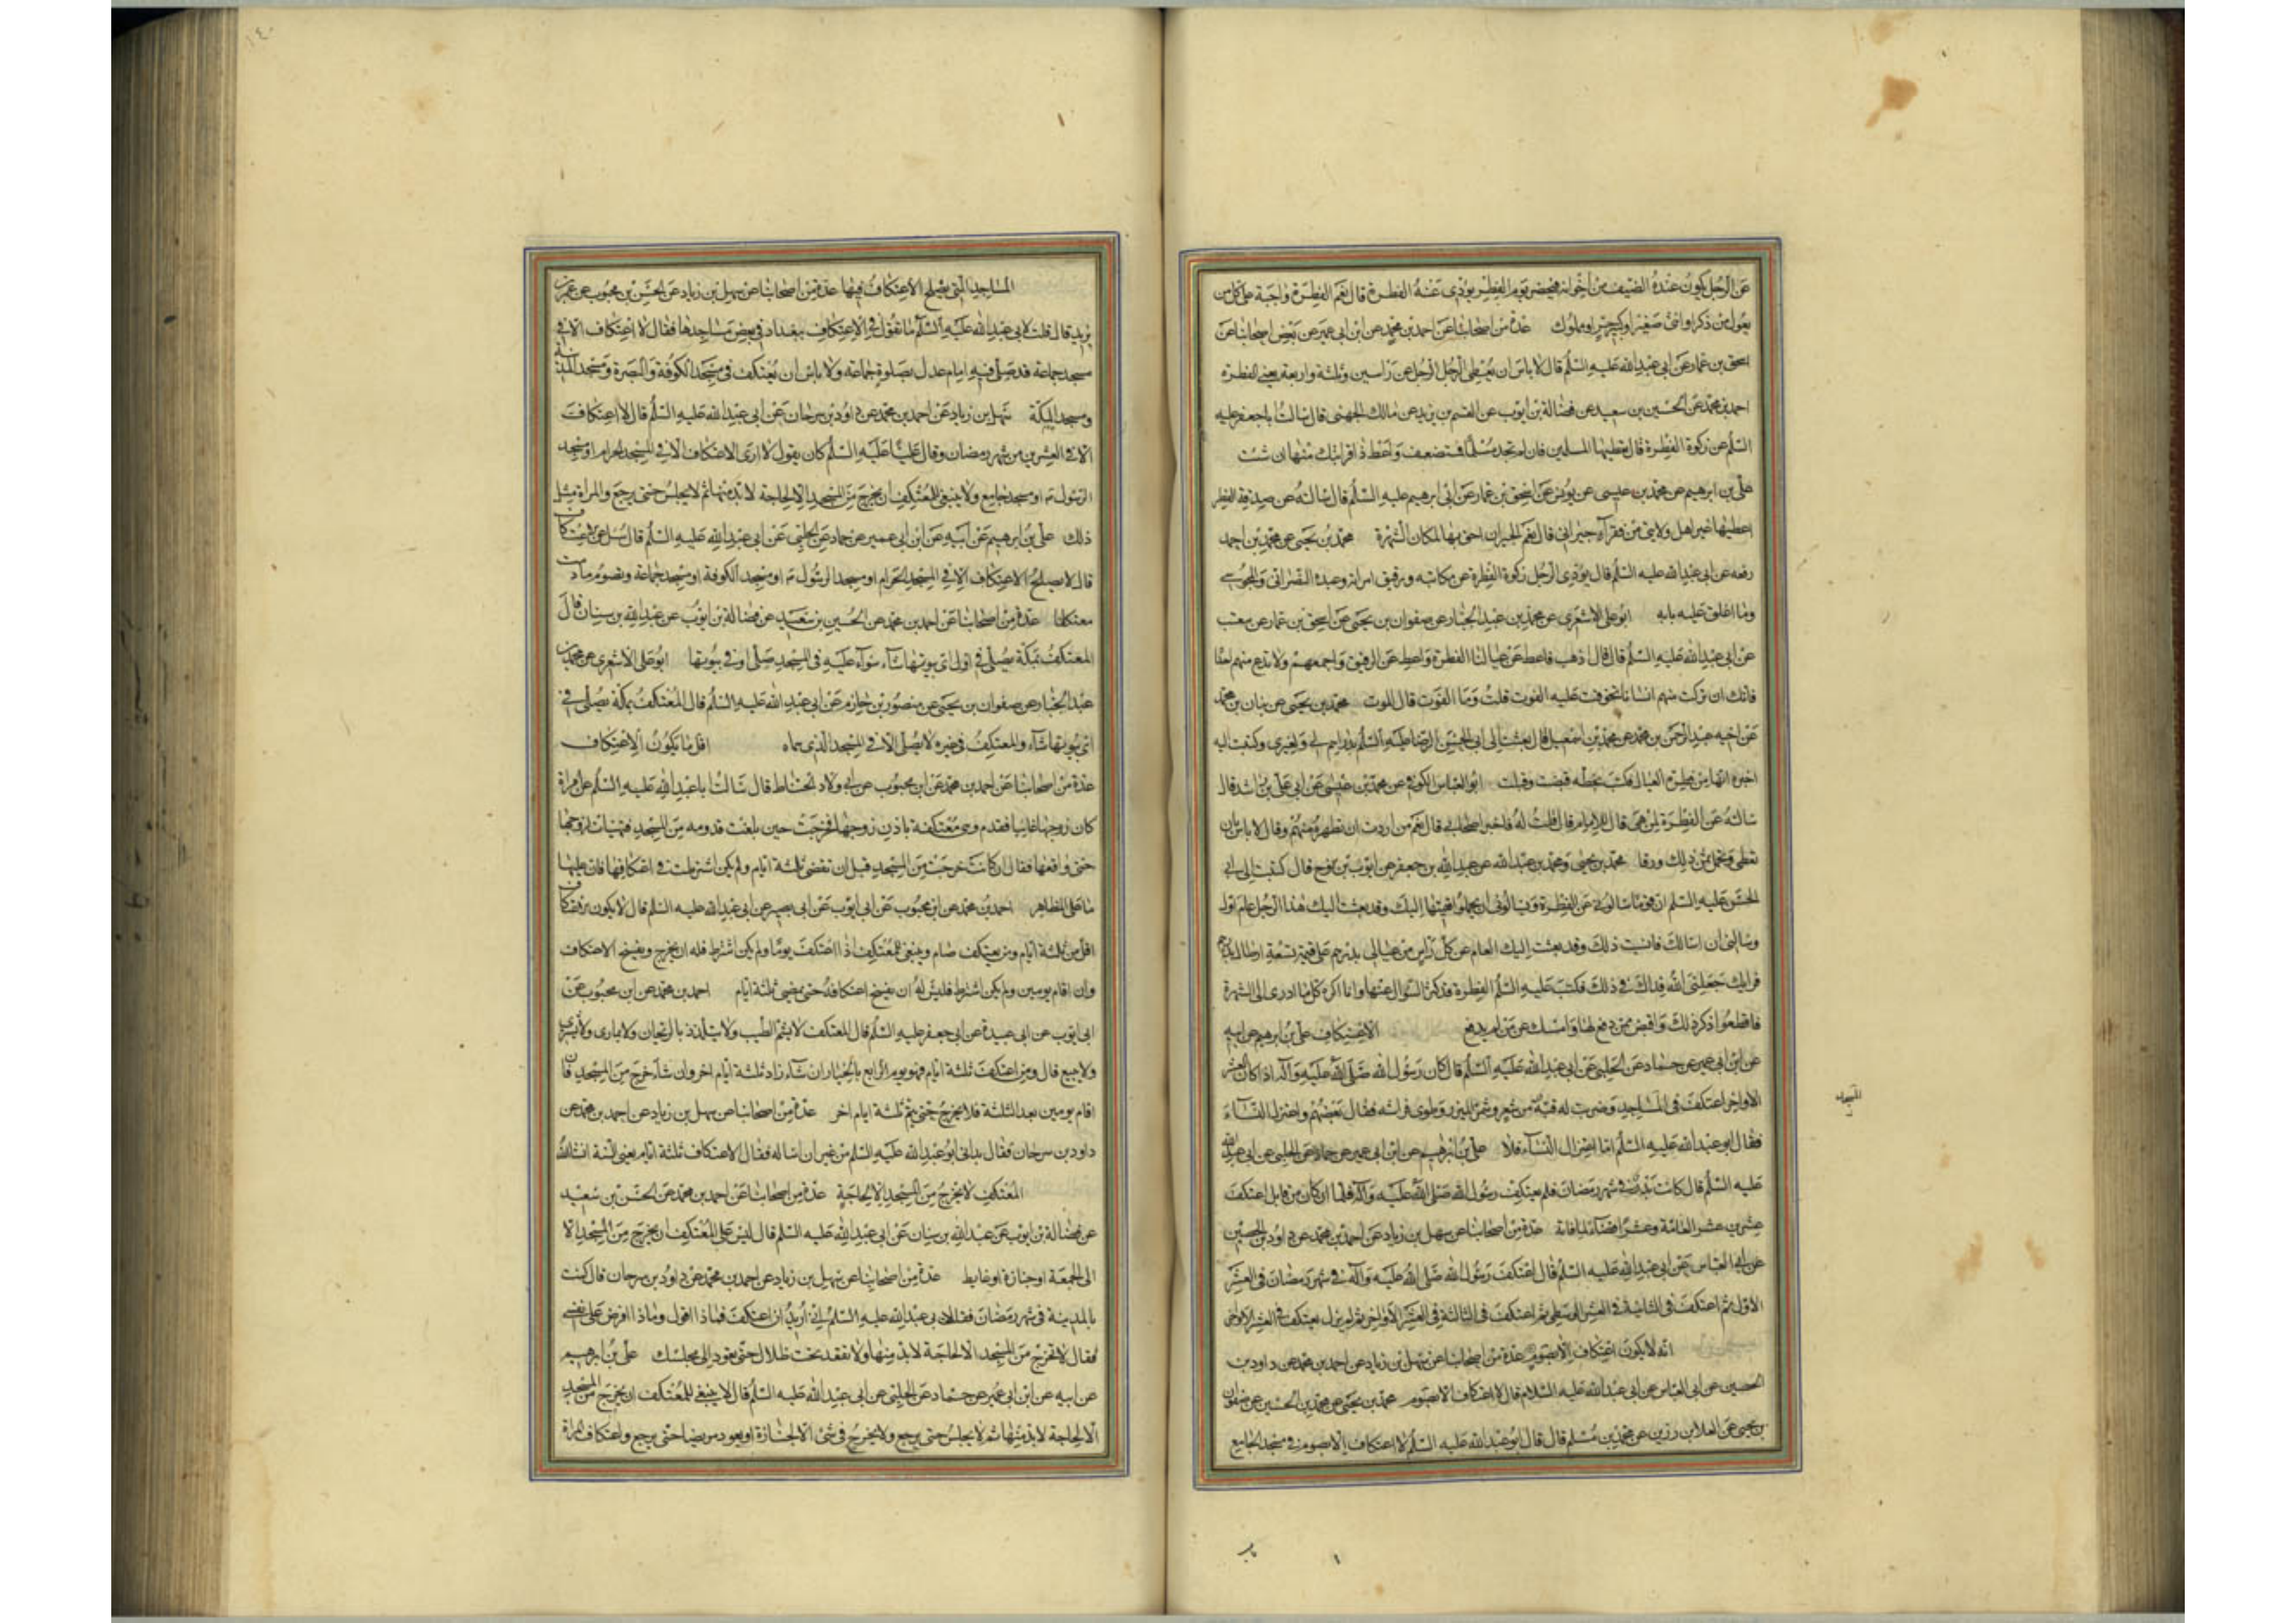 عن الرجل يكون عنده الضيف من اخوانه فيحضر يوم الفطر يؤدى عنه الفطرة قال نعم الفطرة واجبة على كل من
يعول من ذكر او انثى صغير او كبير حر او مملوك عدة من اصحابنا عن احمد بن محمد عن ابن ابى عمير عن بعض اصحابنا عن
اسحق بن عمار عن ابى عبد الله عليه السلم قال لا باس ان يعطى الرجل الرجل عن راسين وثلثة واربعة يعنى الفطرة
احمد بن محمد عن الحسين بن سعيد عن فضالة بن ايوب عن القسم بن بريد عن مالك الجهنى قال سالت ابا جعفر عليه
السلم عن زكوة الفطرة قال تعطيها المسلمين فان لم تجد مسلما فمستضعف واعط ذا قرابتك منها ان شئت
على بن ابرهيم عن محمد بن عيسى عن يونس عن اسحق بن عمار عن ابى ابرهيم عليه السلم قال سالته عن صدقة الفطر
اعطيها غير اهل ولايتى من فقرآء جيرانى قال نعم الجيران احق بها لمكان الشهرة محمد بن يحيى عن محمد بن احمد
رفعه عن ابى عبد الله عليه السلم قال يؤدى الرجل زكوة الفطرة عن مكاتبه ورقيق امراته وعبده النصرانى والمجوسى
وما اغلق عليه بابه ابو على الاشعرى عن محمد بن عبد الجبار عن صفوان بن يحيى عن اسحق بن عمار عن معتب
عن ابى عبد الله عليه السلم قال قال اذهب فاعط عن عيالنا الفطرة واعط عن الرقيق واجمعهم ولا تدع منهم احدا
فانك ان تركت منهم انسانا تخوفت عليه الفوت قلت وما الفوت قال الموت محمد بن يحيى عن بنان بن محمد
عن اخيه عبد الرحمن بن محمد عن محمد بن اسمعيل قال بعثت الى ابى الحسن الرضا عليه السلم بدراهم لى ولغيرى وكتبت اليه
اخبره انها من فطرة العيال فكتب بخطه قبضت وقبلت ابو العباس الكوفى عن محمد بن عيسى عن ابى على بن راشد قال
سالته عن الفطرة لمن هى قال للامام قال قلت له فاخبر اصحابى قال نعم من اردت ان تطهره منهم وقال لا باس بان
تعطى وتحمل ثمن ذلك ورقا محمد بن يحيى ومحمد بن عبد الله عن عبد الله بن جعفر عن ايوب بن نوح قال كتبت الى ابى
الحسن عليه السلم ان قوما سالونى عن الفطرة ويسالونى ان يحملوا قيمتها اليك وقد بعث اليك هذا الرجل عام اول
وسالنى ان اسالك فانسيت ذلك وقد بعثت اليك العام عن كل راس من عيالى بدرهم على قيمة تسعة ارطال بدرهم
فرايك جعلنى الله فداك فى ذلك فكتب عليه السلم الفطرة قد كثر السؤال عنها وانا اكره كل ما ادى الى الشهرة
فاقطعوا ذكر ذلك واقبض ممن دفع لها وامسك عن من لم يدفع الاعتكاف على بن ابرهيم عن ابيه
عن ابن ابى عمير عن حماد عن الحلبى عن ابى عبد الله عليه السلم قال كان رسول الله صلى الله عليه وآله اذا كان العشر
الاواخر اعتكف فى المساجد وضربت له قبة من شعر وشمر الميزر وطوى فراشه فقال بعضهم واعتزل النسآء
فقال ابو عبد الله عليه السلم اما اعتزال النسآء فلا على بن ابرهيم عن ابن ابى عمير عن حماد عن الحلبى عن ابى عبد الله
عليه السلم قال كانت بدر فى شهر رمضان فلم يعتكف رسول الله صلى الله عليه وآله فلما ان كان من قابل اعتكف
عشرين عشرا لعامه وعشرا قضآء لما فاته عدة من اصحابنا عن سهل بن زياد عن احمد بن محمد عن داود بن الحصين
عن ابى العباس عن ابى عبد الله عليه السلم قال اعتكف رسول الله صلى الله عليه وآله فى شهر رمضان فى العشر
الاول ثم اعتكف فى الثانية فى العشر الوسطى ثم اعتكف فى الثالثة فى العشر الاواخر ثم لم يزل يعتكف فى العشر الاواخر
انه لا يكون اعتكاف الا بصوم عدة من اصحابنا عن سهل بن زياد عن احمد بن محمد عن داود بن
الحصين عن ابى العباس عن ابى عبد الله عليه السلام قال لا اعتكاف الا بصوم محمد بن يحيى عن محمد بن الحسين عن صفوان
بن يحيى عن العلا بن رزين عن محمد بن مسلم قال قال ابو عبد الله عليه السلم لا اعتكاف الا بصوم فى مسجد الجامع
المسجد
المساجد التى يصلح الاعتكاف فيها عدة من اصحابنا عن سهل بن زياد عن الحسن بن محبوب عن عمر بن
يزيد قال قلت لابى عبد الله عليه السلم ما تقول فى الاعتكاف ببغداد فى بعض مساجدها فقال لا اعتكاف الا فى
مسجد جماعة قد صلى فيه امام عدل بصلوة جماعة ولا باس ان يعتكف فى مسجد الكوفة والبصرة ومسجد المدينة
ومسجد المكة سهل بن زياد عن احمد بن محمد عن داود بن سرحان عن ابى عبد الله عليه السلم قال لا اعتكاف
الا فى العشرين من شهر رمضان وقال عليا عليه السلم كان يقول لا ارى الاعتكاف الا فى المسجد الحرام او مسجد
الرسول ص او مسجد جامع ولا ينبغى للمعتكف ان يخرج من المسجد الا لحاجة لا بد منها ثم لا يجلس حتى يرجع والمراة مثل
ذلك على بن ابرهيم عن ابيه عن ابن ابى عمير عن حماد عن الحلبى عن ابى عبد الله عليه السلم قال سئل عن الاعتكاف
قال لا يصلح الاعتكاف الا فى المسجد الحرام او مسجد الرسول ص او مسجد الكوفة او مسجد جماعة وتصوم ما دمت
معتكفا عدة من اصحابنا عن احمد بن محمد عن الحسين بن سعيد عن فضالة بن ايوب عن عبد الله بن سنان قال
المعتكف بمكة يصلى فى اى بيوتها شآء سوآء عليه فى المسجد صلى او فى بيوتها ابو على الاشعرى عن محمد بن
عبد الجبار عن صفوان بن يحيى عن منصور بن حازم عن ابى عبد الله عليه السلم قال المعتكف بمكة يصلى فى
اى بيوتها شآء والمعتكف فى غيره لا يصلى الا فى المسجد الذى سماه اقل ما يكون الاعتكاف
عدة من اصحابنا عن احمد بن محمد عن ابن محبوب عن ابى ولاد الحناط قال سالت ابا عبد الله عليه السلم عن امراة
كان زوجها غايبا فقدم وهى معتكفة باذن زوجها فخرجت حين بلغت قدومه من المسجد فتهيات لزوجها
حتى واقعها فقال ان كانت خرجت من المسجد قبل ان تقضى ثلثة ايام ولم يكن اشترطت فى اعتكافها فان عليها
ما على المظاهر احمد بن محمد عن ابن محبوب عن ابى ايوب عن ابى بصير عن ابى عبد الله عليه السلم قال لا يكون اعتكاف
اقل من ثلثة ايام ومن يعتكف صام وينبغى للمعتكف اذا اعتكف يوما ولم يكن اشترط فله ان يخرج ويفسخ الاعتكاف
وان اقام يومين ولم يكن اشترط فليس له ان يفسخ اعتكافه حتى يمضى ثلثة ايام احمد بن محمد عن ابن محبوب عن
ابى ايوب عن ابى عبيدة عن ابى جعفر عليه السلم قال المعتكف لا يشم الطيب ولا يتلذذ بالريحان ولا يمارى ولا يشرى
ولا يبيع قال ومن اعتكف ثلثة ايام فهو يوم الرابع بالخيار ان شآء زاد ثلثة ايام اخر وان شآء خرج من المسجد فان
اقام يومين بعد الثلثة فلا يخرج حتى يتم ثلثة ايام اخر عدة من اصحابنا عن سهل بن زياد عن احمد بن محمد عن
داود بن سرحان فقال بدانى ابو عبد الله عليه السلم من غير ان اساله فقال الاعتكاف ثلثة ايام يعنى السنة انشاالله
المعتكف لا يخرج من المسجد الا لحاجة عدة من اصحابنا عن احمد بن محمد عن الحسين بن سعيد
عن فضالة بن ايوب عن عبد الله بن سنان عن ابى عبد الله عليه السلم قال ليس على المعتكف ان يخرج من المسجد الا
الى الجمعة او جنازة او غايط عدة من اصحابنا عن سهل بن زياد عن احمد بن محمد عن داود بن سرحان قال كنت
بالمدينة فى شهر رمضان فقلت لابى عبد الله عليه السلم انى اريد ان اعتكف فماذا اقول وماذا افرض على نفسى
فقال لا تخرج من المسجد الا لحاجة لا بد منها ولا تقعد تحت ظلال حتى تعود الى مجلسك على بن ابرهيم
عن ابيه عن ابن ابى عمير عن حماد عن الحلبى عن ابى عبد الله عليه السلم قال لا ينبغى للمعتكف ان يخرج من المسجد
الا لحاجة لا بد منها ثم لا يجلس حتى يرجع ولا يخرج فى شئ الا لجنازة او يعود مريضا حتى يرجع واعتكاف المراة